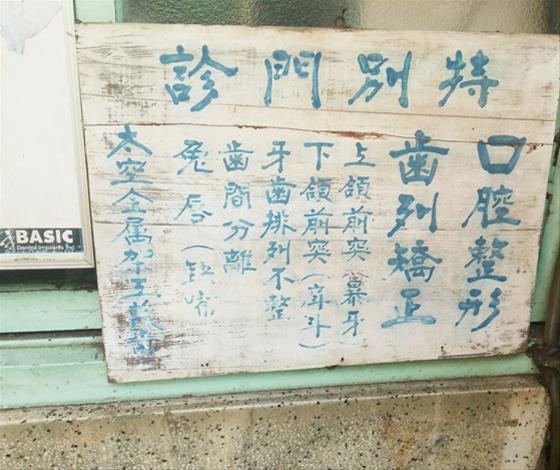 特別門診
口腔整形
齒列矯正
上頜前突(暴牙)
下頜前突(戽斗)
牙齒排列不整
齒間分離
兔唇(缺嘴)
太空金属架工義齒
BASIC
Dental Implants Inc